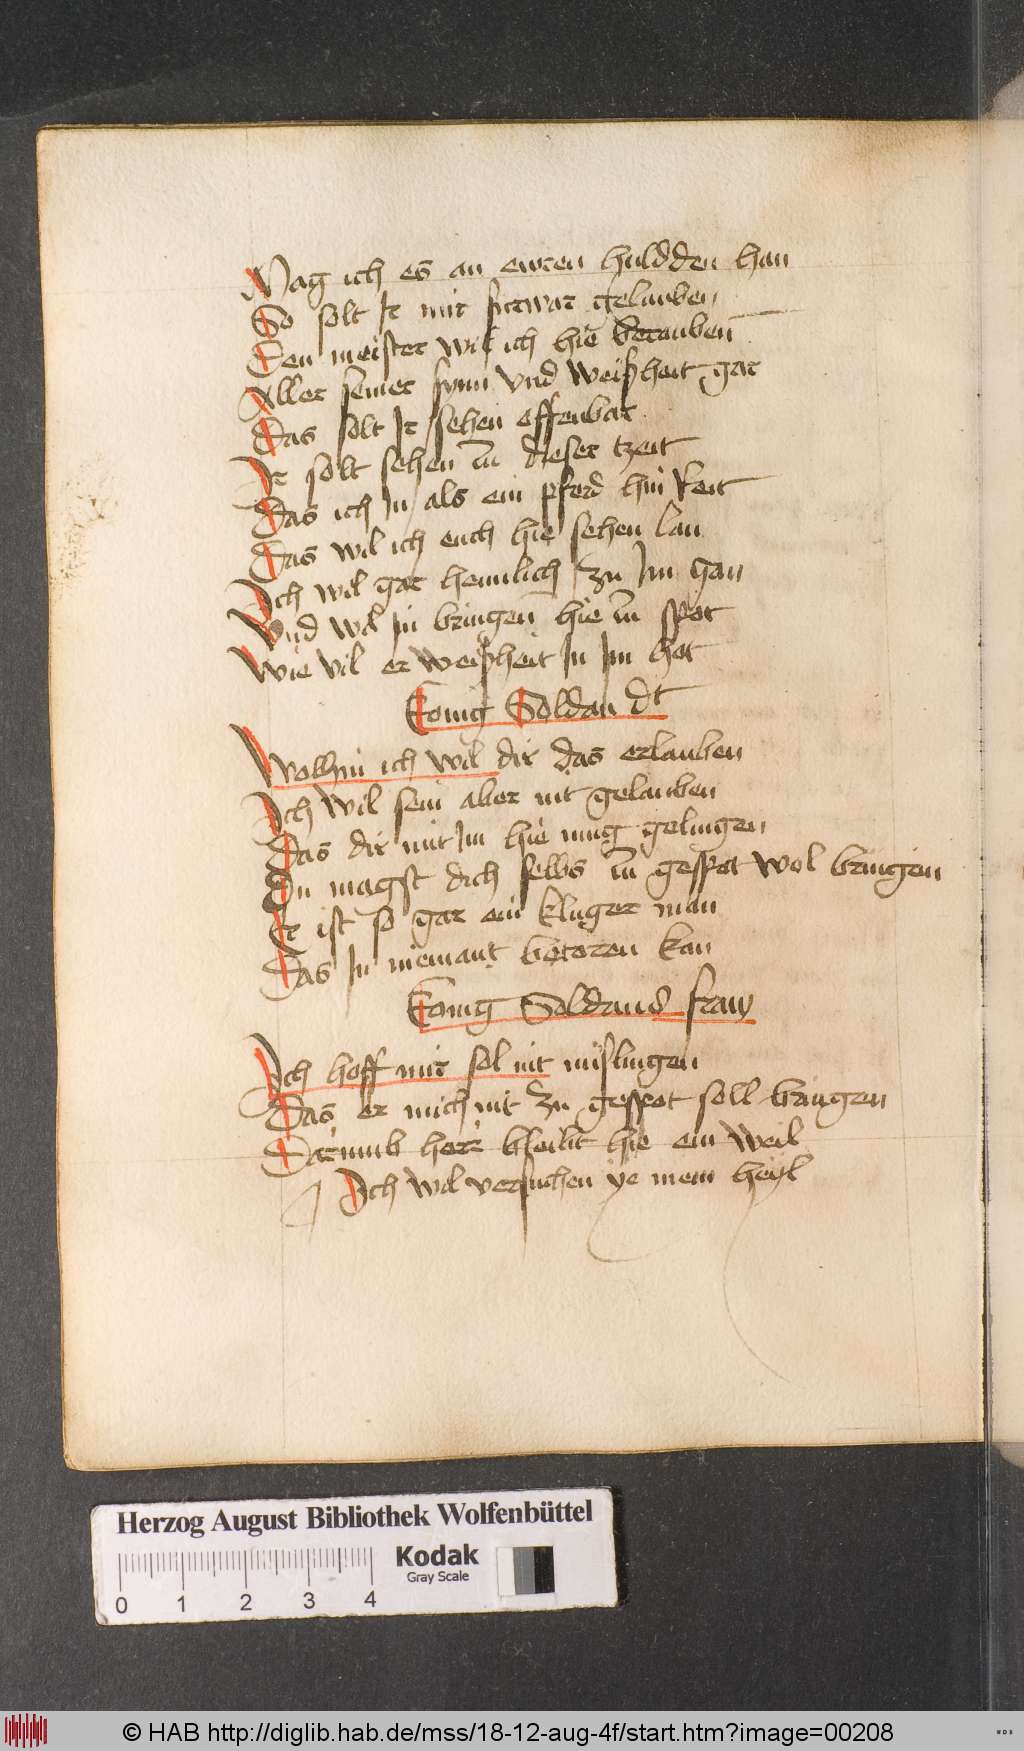 Mag ich es an ewren huldden han
So solt Ir mir furwar gelauben
Den meister wil ich hie betauben
Aller seiner synn vnd weißheit gar
Das solt Ir sehen offenbar
Ir solt sehen in dieser tzeit
Das ich In als ein pferd hin Reit
Das wil ich euch hie sehen lan
Ich wil gar heimlich zu Im gan
Vnd wil In bringen hie in spot
Wie vil er weißheit In Im hat
Konig Soldan dt
Wolhin ich wil dir das erlauben
Ich wil sein aber nit gelauben
Das dir mit Im hie mug gelingen
Du magst dich selbs in gespot wol bringen
Er ist so gar ein kluger man
Das In niemant betoren kan
Konig Soldans fraw
Ich hoff mir sol nit mislingen
Das er mich nit zu gespot soll bringen
Darumb herr bleibt hie ein weil
Ich wil versuchen ye mein heyl
Herzog August Bibliothek Wolfenbüttel
Kodak
Gray Scale
0 1 2 3 4
© HAB http://diglib.hab.de/mss/18-12-aug-4f/start.htm?image=00208